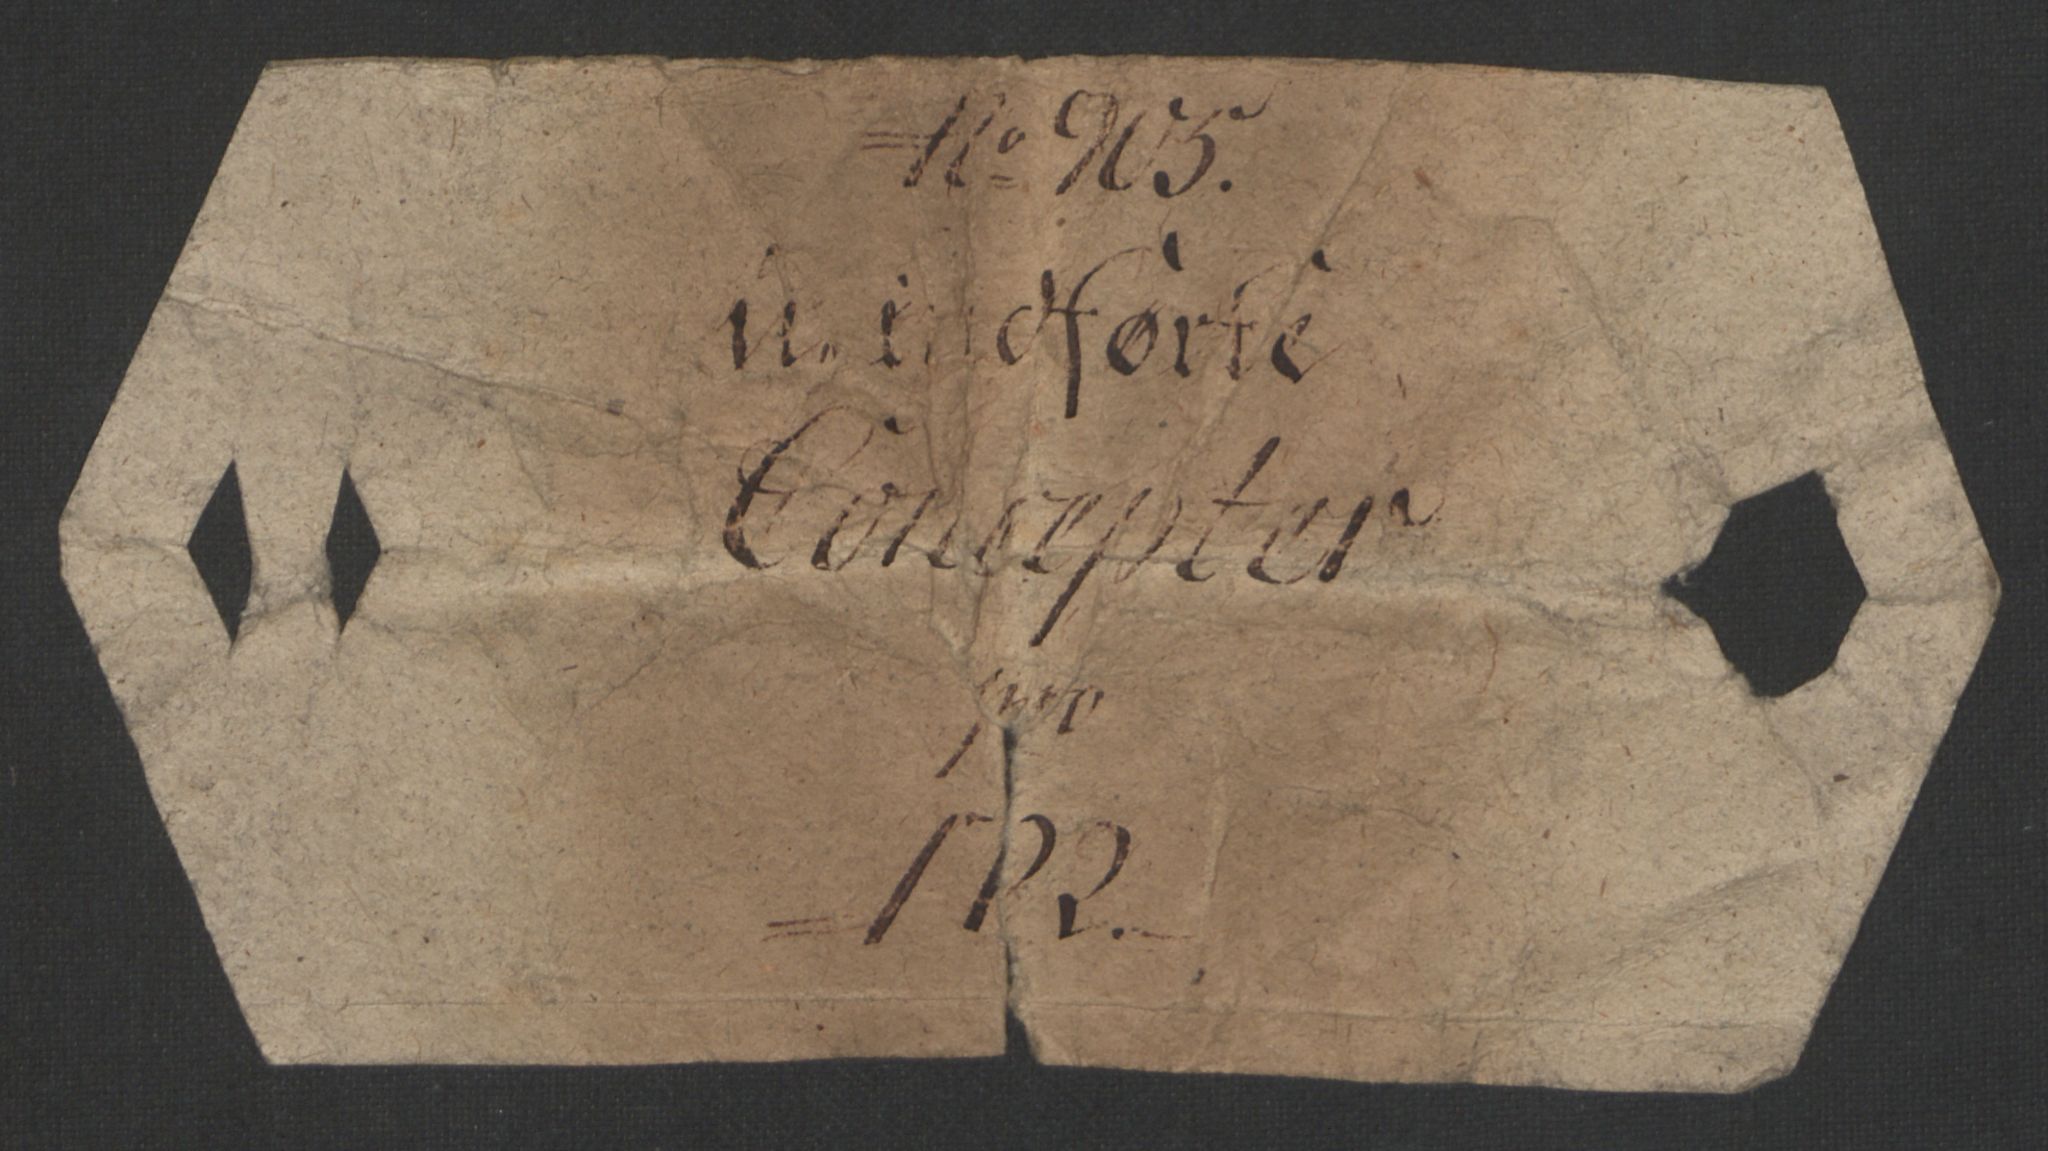 No 965.
u. indførte
Concepter
pro
1722.